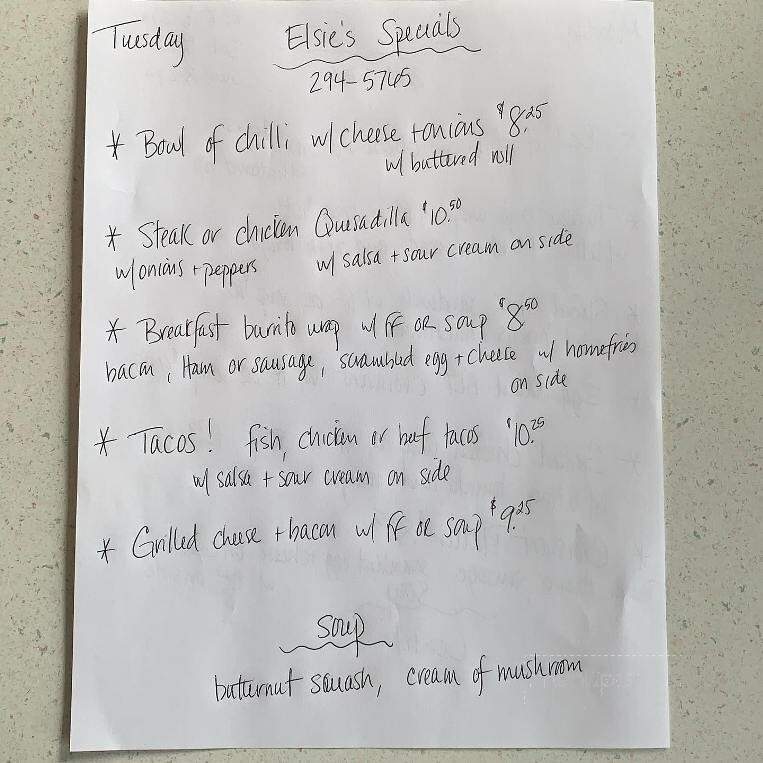 Tuesday Elsie's Specials
294-5765
* Bowl of chilli w/ cheese + onions $8.25
w/ buttered roll
* Steak or chicken Quesadilla $10.50
w/ onions + peppers w/ salsa + sour cream on side
* Breakfast burrito wrap w/ FF OR soup $8.50
bacon, Ham or sausage, scrambled egg + cheese w/ homefries
on side
* Tacos! fish, chicken or beef tacos $10.25
w/ salsa + sour cream on side
* Grilled cheese + bacon w/ FF OR soup $9.25
Soup
butternut squash, cream of mushroom